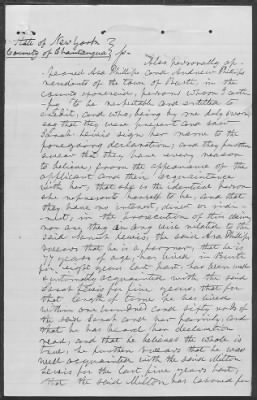 State of New York }
County of Chautauqua } ss.
Also personally ap-
peared Asa Phillips and Andrew Phillips
residents of the town of Busti, in the
county aforesaid, persons whom I certi-
fy to be respectable and entitled to
credit, and who, being by me duly sworn,
say that they were present and saw
Sarah Lewis sign her name to the
foregoing declaration; and they further
swear that they have every reason
to believe, from the appearance of the
applicant and their acquaintance
with her, that she is the identical person
she represents herself to be, and that
they have no interest, direct or indi-
rect, in the prosecution of this claim
nor are they in any wise related to the
said Sarah Lewis, the said Asa Phillips
swears that he is a farmer, that he is
77 years of age, has lived in Busti
for eight years last past, has been well
acquainted with the said
Sarah Lewis for five years, that for
that length of time he has lived
within one hundred and sixty rods of
the said Sarah and her family, and
that he has heard her declaration
read, and that he believes the whole is
true. he further swears that he was
well acquainted with the said Milton
Lewis for the last five years past,
that the said Milton has labored for